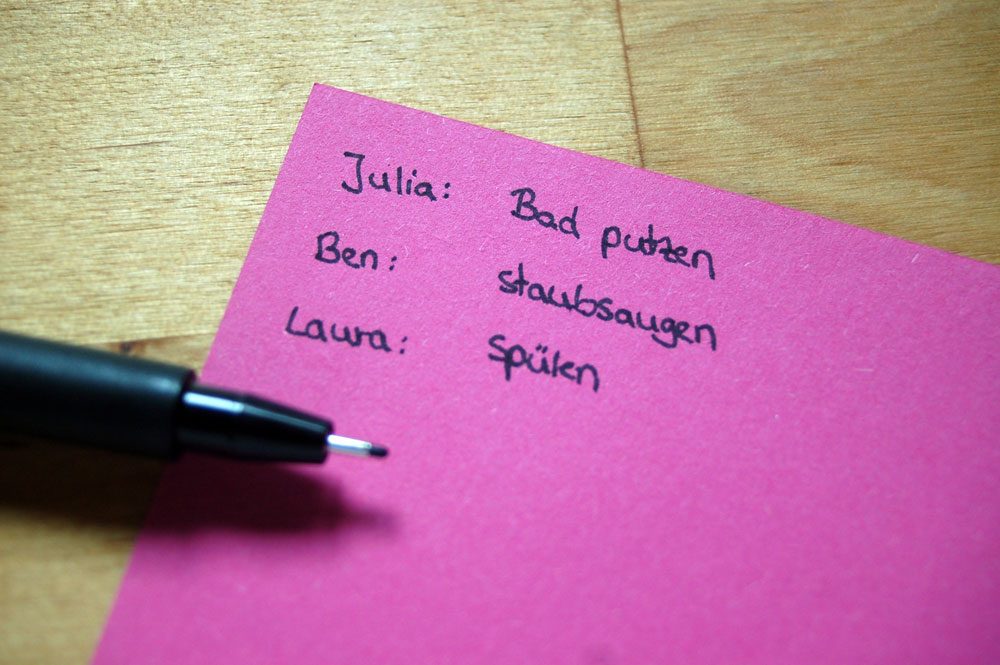 Julia: Bad putzen
Ben: staubsaugen
Laura: Spülen